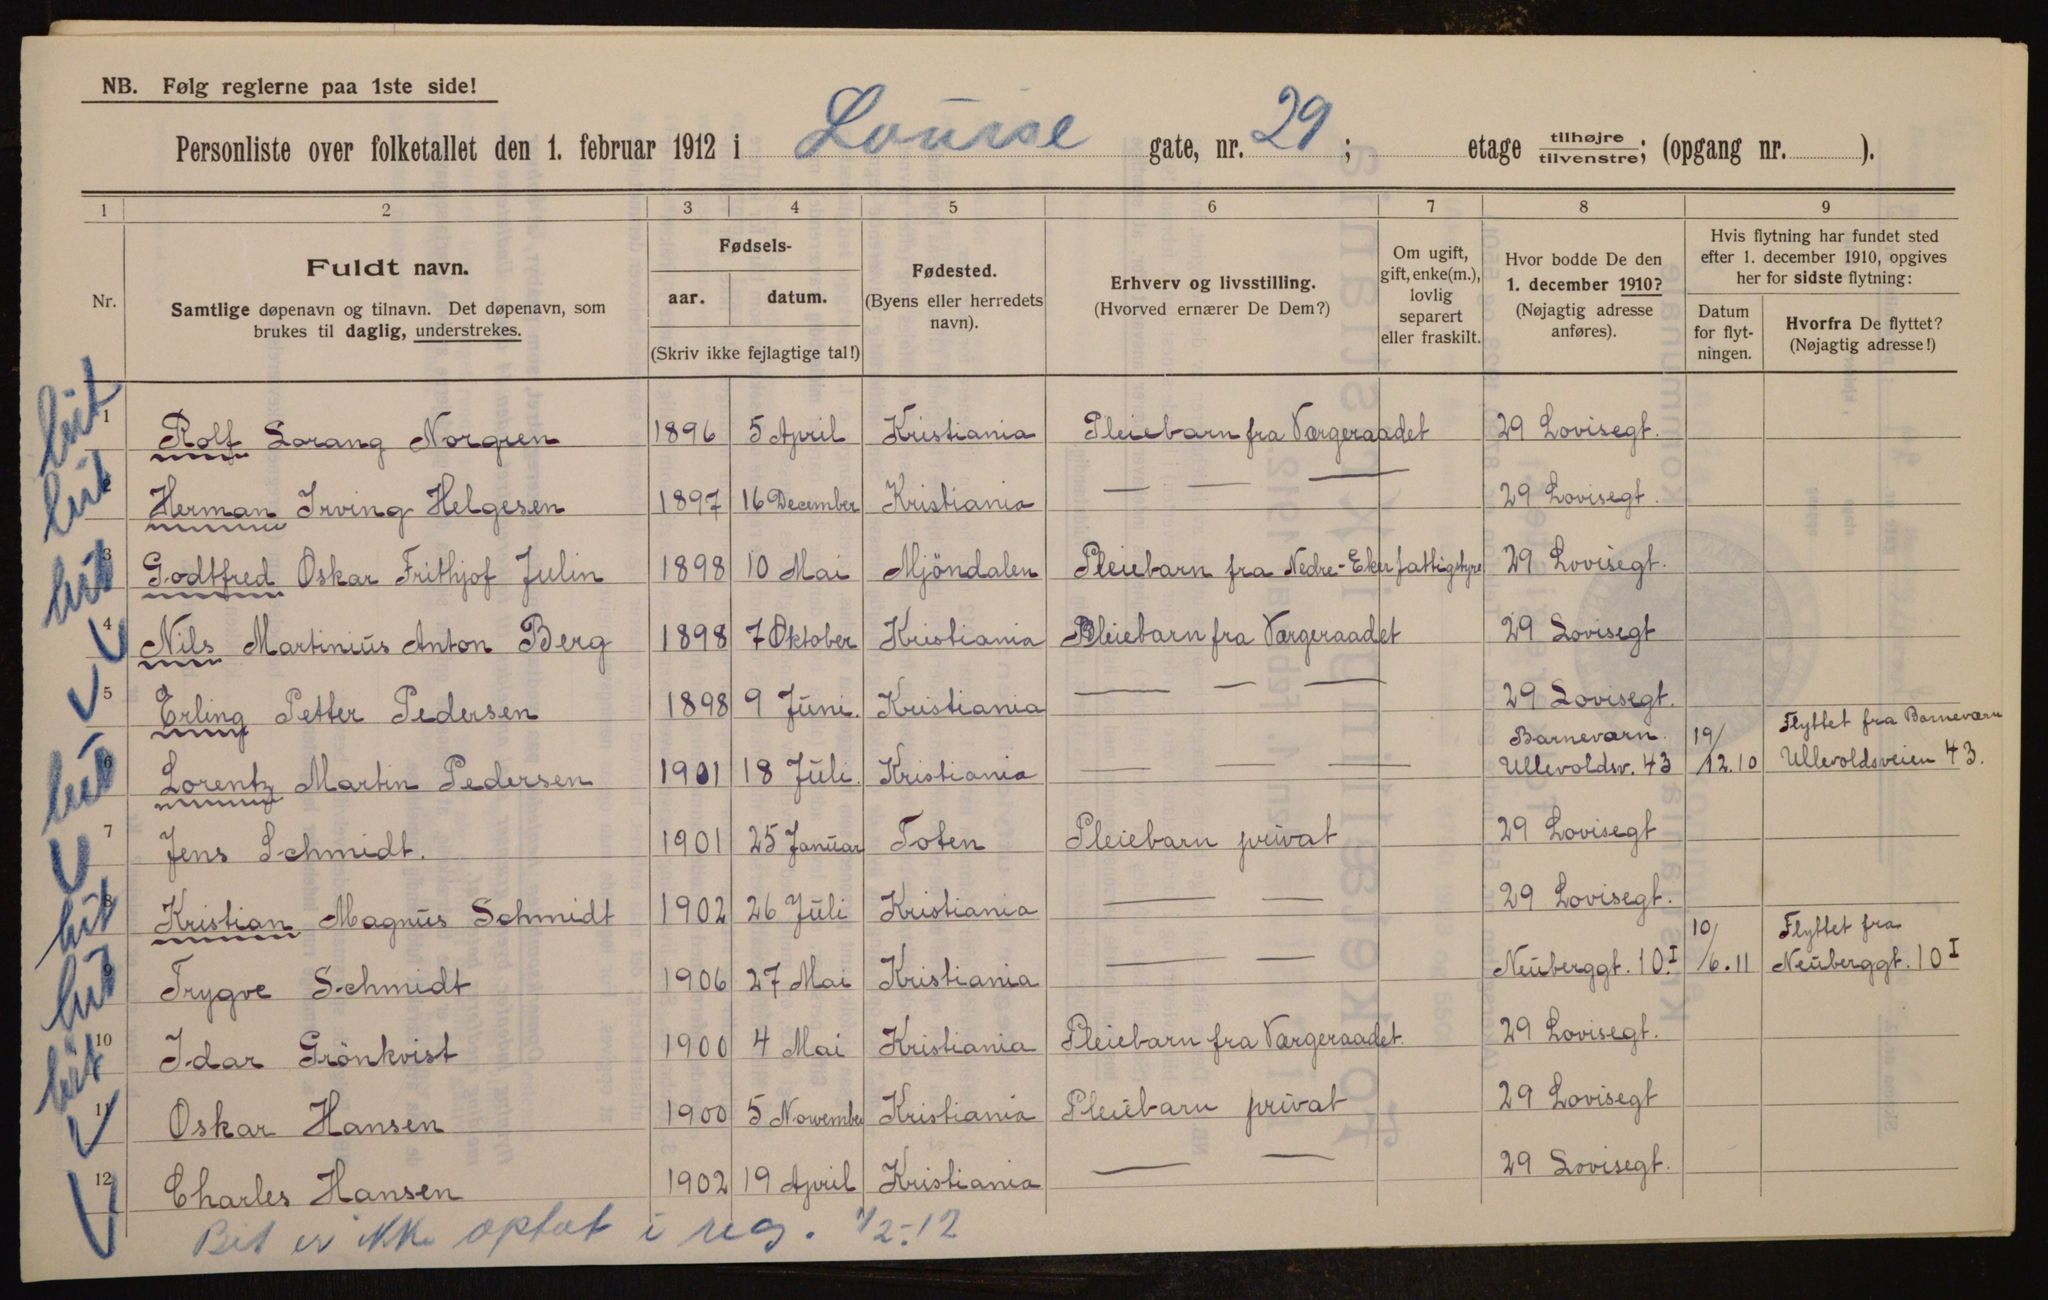 NB. Følg reglerne paa 1ste side!
Personliste over folketallet den 1. februar 1912 i Louise gate, nr. 29; etage tilhøjre/tilvenstre; (opgang nr. ).
1 2 3 4 5 6 7 8 9
Nr.
Fuldt navn.
Samtlige døpenavn og tilnavn. Det døpenavn, som
brukes til daglig, understrekes.
Fødsels-
aar. datum.
(Skriv ikke fejlagtige tal!)
Fødested.
(Byens eller herredets
navn).
Erhverv og livsstilling.
(Hvorved ernærer De Dem?)
Om ugift,
gift, enke(m.),
lovlig
separert
eller fraskilt.
Hvor bodde De den
1. december 1910?
(Nøjagtig adresse
anføres).
Hvis flytning har fundet sted
efter 1. december 1910, opgives
her for sidste flytning:
Datum
for flyt-
ningen.
Hvorfra De flyttet?
(Nøjagtig adresse!)
1 Rolf Lorang Norgren 1896 5 April Kristiania Pleiebarn fra Værgeraadet 29 Lovisegt.
2 Herman Irving Helgesen 1897 16 December Kristiania — — — 29 Lovisegt.
3 Godtfred Oskar Frithjof Julin 1898 10 Mai Mjöndalen Pleiebarn fra Nedre-Eker fattigstyre 29 Lovisegt.
4 Nils Martinius Anton Berg 1898 7 Oktober Kristiania Pleiebarn fra Værgeraadet 29 Lovisegt
5 Erling Petter Pedersen 1898 9 Juni. Kristiania — — — 29 Lovisegt.
6 Lorentz Martin Pedersen 1901 18 Juli. Kristiania — — — Barneværn. Ullevoldsv. 43 19/12.10 Flyttet fra Barneværn Ullevoldsveien 43.
7 Jens Schmidt. 1901 25 Januar Toten Pleiebarn privat 29 Lovisegt
8 Kristian Magnus Schmidt 1902 26 Juli Kristiania — — 29 Lovisegt.
9 Trygve Schmidt 1906 27 Mai Kristiania — — Neuberggt. 10 I 10/6.11 Flyttet fra Neuberggt. 10 I
10 Idar Grönkvist 1900 4 Mai Kristiania Pleiebarn fra Værgeraadet. 29 Lovisegt.
11 Oskar Hansen 1900 5 November Kristiania Pleiebarn privat 29 Lovisegt
12 Charles Hansen 1902 19 April Kristiania — — 29 Lovisegt.
er ikke optat i reg. 1/2.-12